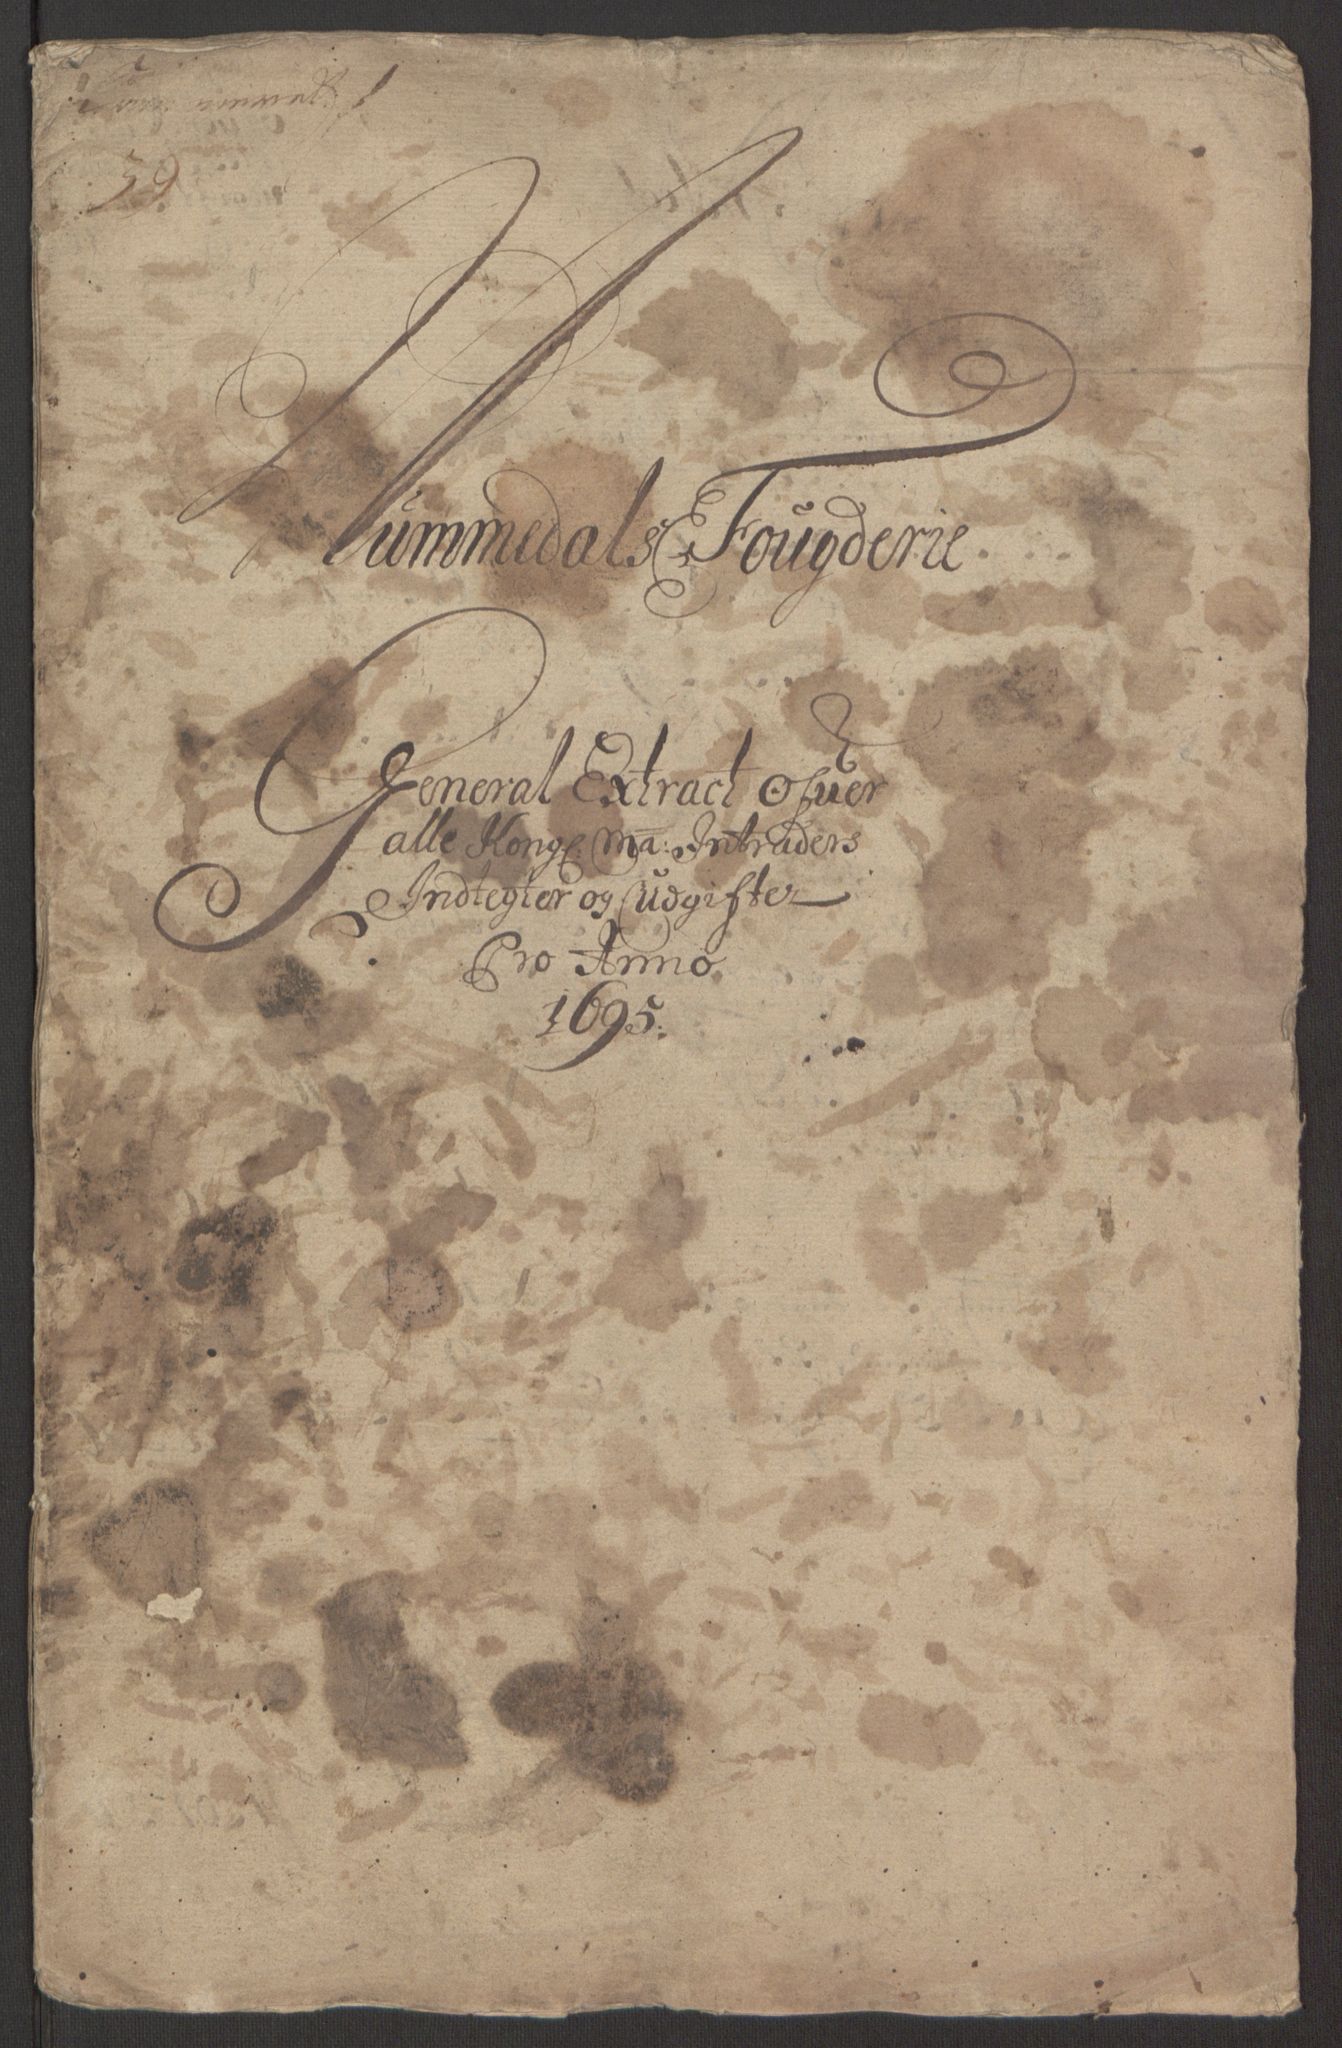 59
Nummedals Fougderie
General Extract ofuer
alle Kongl: Ma: Intraders
Indtegter og udgifter
Pro Anno
1695.